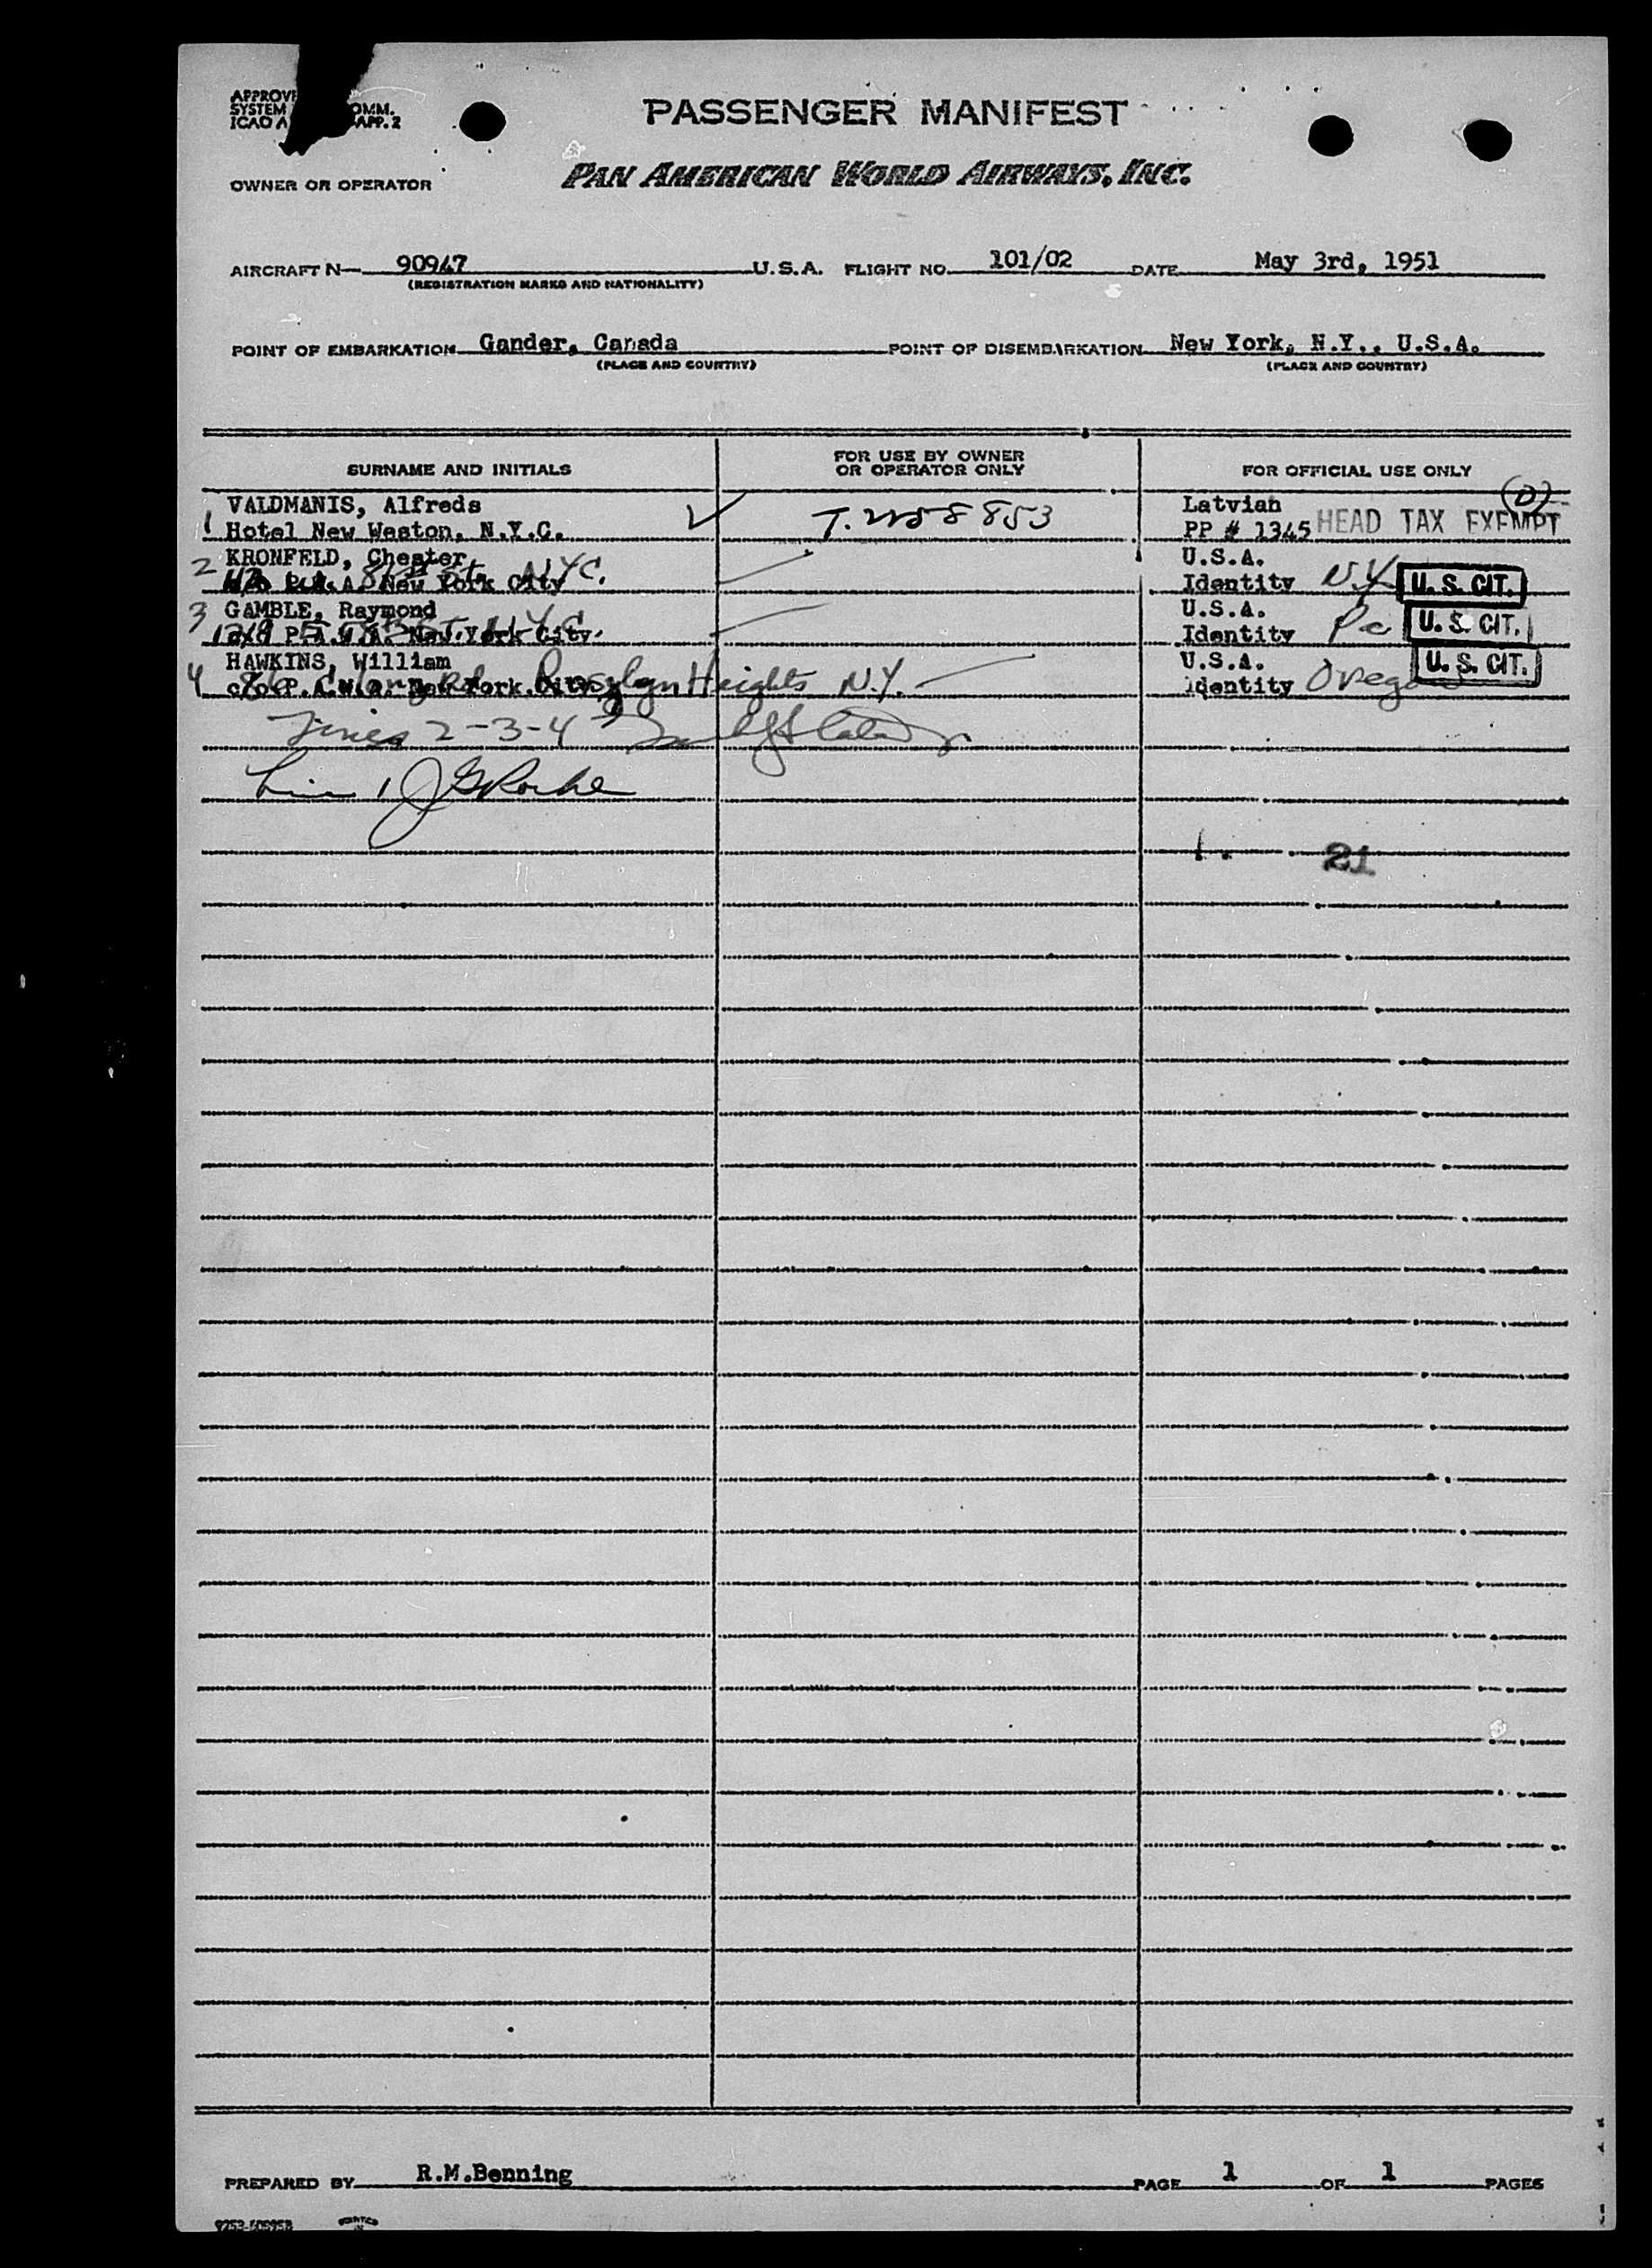 APPROV OMM.
SYSTEM
ICAO A APP. 2
PASSENGER MANIFEST
OWNER OR OPERATOR PAN AMERICAN WORLD AIRWAYS, INC.
AIRCRAFT N— 90947 U.S.A. FLIGHT NO. 101/02 DATE May 3rd, 1951
(REGISTRATION MARKS AND NATIONALITY)
POINT OF EMBARKATION Gander, Canada POINT OF DISEMBARKATION New York, N.Y., U.S.A.
(PLACE AND COUNTRY) (PLACE AND COUNTRY)
SURNAME AND INITIALS FOR USE BY OWNER OR OPERATOR ONLY FOR OFFICIAL USE ONLY
VALDMANIS, Alfreds Latvian (D)
1 Hotel New Weston, N.Y.C. PP # 1345 HEAD TAX EXEMPT
2 KRONFELD, Chester U.S.A.
c/o P.A.A. New York City N.Y.C. Identity N.Y. U. S. CIT.
3 GAMBLE, Raymond U.S.A.
c/o P.A.W.A. New York City N.Y.C. Identity Pa U. S. CIT.
HAWKINS, William U.S.A.
4 c/o P.A.W.A. New York City Roslyn Heights N.Y. Identity Oregon U. S. CIT.
Lines 2-3-4
Line 1
21
PREPARED BY R.M.Benning PAGE 1 OF 1 PAGES